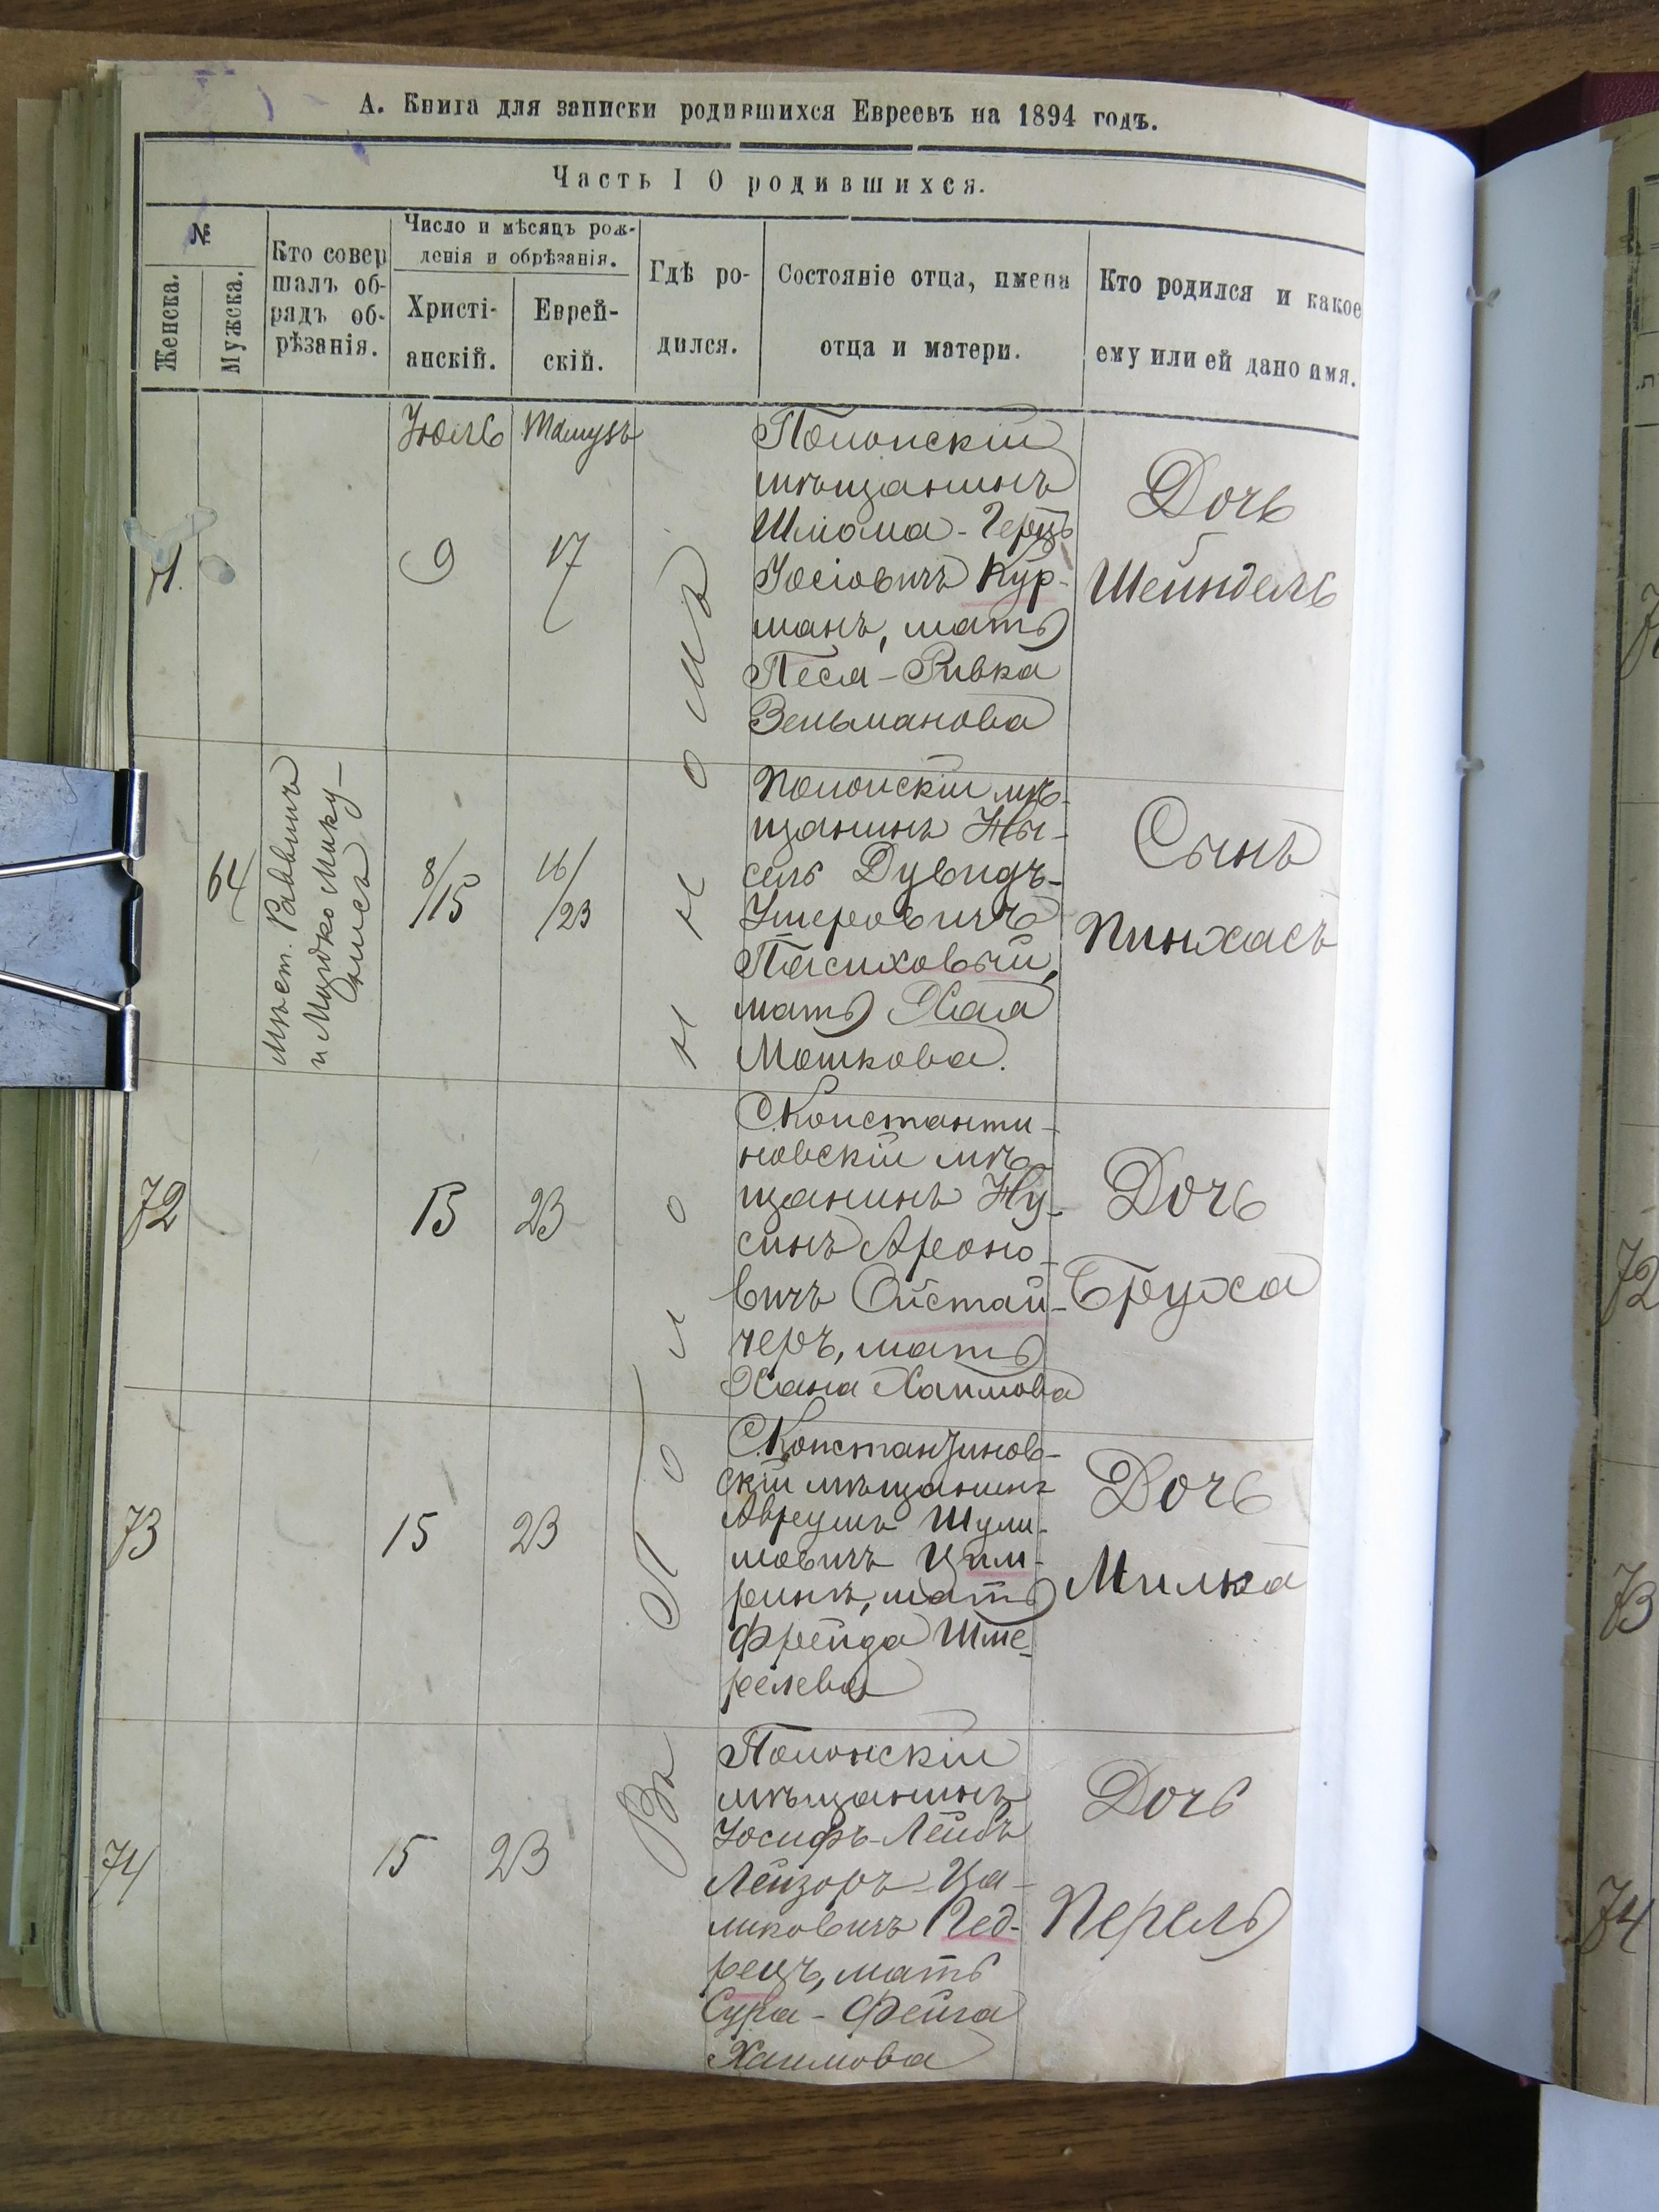 А. Книга для записки родившихся Евреевъ на 1894 годъ.
Часть I О родившихся.
№
Женска.
Мужска.
Кто совер
шалъ об-
рядъ об-
рѣзанія.
Число и мѣсяцъ рож-
денія и обрѣзанія.
Христі-
анскій.
Еврей-
скій.
Гдѣ ро-
дился.
Состояніе отца, имена
отца и матери.
Кто родился и какое
ему или ей дано имя.
Въ Полонномъ
71.
Июль
9
Тамузъ
17
Полонскій
мѣщанинъ
Шлiома-Герцъ
Иосіовичъ Кур-
манъ, мать
Песя-Ривка
Зельманова
Дочь
Шейндель
64
Мѣст. Раввинъ
и Мошко Мику-
8/15
16/23
Полонскій мѣ-
щанинъ Ны-
сель Дувидъ-
Ушеровичъ
Пасиховый,
мать Хая
Мошкова.
Сынъ
Пинхасъ
72
15
23
С.Константи-
новскій мѣ-
щанинъ Ну-
синъ Ароно-
вичъ Ойстай-
черъ, мать
Хана Хаимова
Дочь
Бруха
73
15
23
С.Константинов-
скій мѣщанинъ
Авреумъ Шули-
мовичъ Цим-
ринъ, мать
Фрейда Шме-
релева
Дочь
Милка
74
15
23
Полонскій
мѣщанинъ
Иосифъ-Лейбъ
Лейзоръ-Ица-
ликовичъ Гед-
рецъ, мать
Сура-Фейга
Хаимова
Дочь
Перель
72
73
74